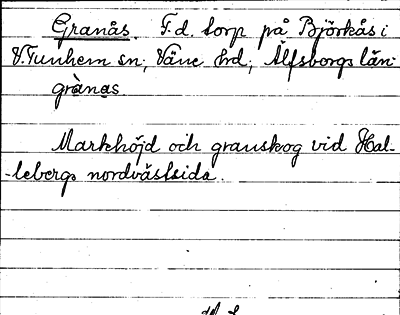 Granås. F.d. torp på Björkås i
V. Tunhem sn, Väne hd, Älfsborgs län.
grànas
Markhöjd och granskog vid Hal-
-lebergs nordvästsida.